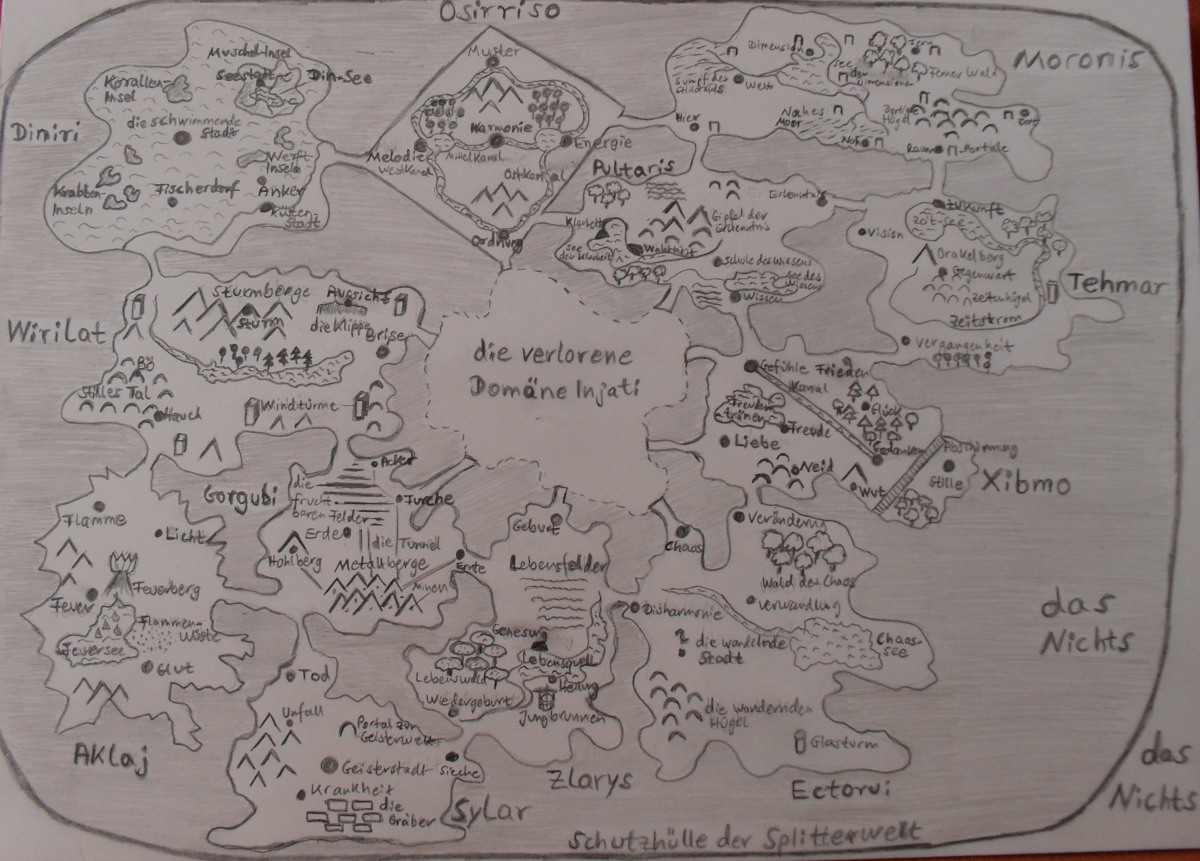 Osirriso
Muster
Harmonie
Energie
Melodie
Westkanal
Mittelkanal
Ostkanal
Ordnung
Diniri
Muschel-Insel
Seestadt
Din-See
Korallen
Insel
die schwimmende
Stadt
Werft
Inseln
Krabben
Inseln
Fischerdorf
Anker
Küsten-
stadt
Moronis
Dimension
See
der
Dimensionen
Fern
Ferner Wald
Sumpf des
Welt
Nahes
Moor
Hügel
Dort
Hier
Nah
Raum
Portale
Pultaris
Erkenntnis
Gipfel der
Erkenntnis
Klarheit
See
der Klarheit
Wahrheit
Schule des Wissens
See des
Wissens
Wissen
Tehmar
Zukunft
Zeit-see
Vision
Orakelberg
Gegenwart
Zeitenhügel
Zeitstrom
Vergangenheit
WiriLat
Sturmberge
Aussicht
Sturm
die Klippe
Brise
Bö
Stilles Tal
Hauch
Windtürme
die verlorene
Domäne Injati
Xibmo
Gefühle
Frieden
Kanal
Glück
Freuden
tränen
Freude
Liebe
Gedanken
Abschirmung
Stille
Neid
Wut
Gorgubi
Acker
die
frucht-
baren Felder
Furche
Erde
die Tunnel
Hohlberg
Metallberge
Minen
Ernte
AKlaj
Flamme
Licht
Feuerberg
Feuer
Flammen-
Wüste
Feuersee
Glut
Zlarys
Geburt
Lebensfelder
Genesung
Lebensquell
Lebenswald
Heilung
Wiedergeburt
Jungbrunnen
Ectorvi
Chaos
Veränderung
Wald des Chaos
Verwandlung
Disharmonie
Chaos-
see
die wandelnde
Stadt
die wandernden
Hügel
Glasturm
Sylar
Tod
Unfall
Portal zur
Geisterwelt
Geisterstadt
Sieche
Krankheit
die
Gräber
das
Nichts
das
Nichts
Schutzhülle der Splitterwelt